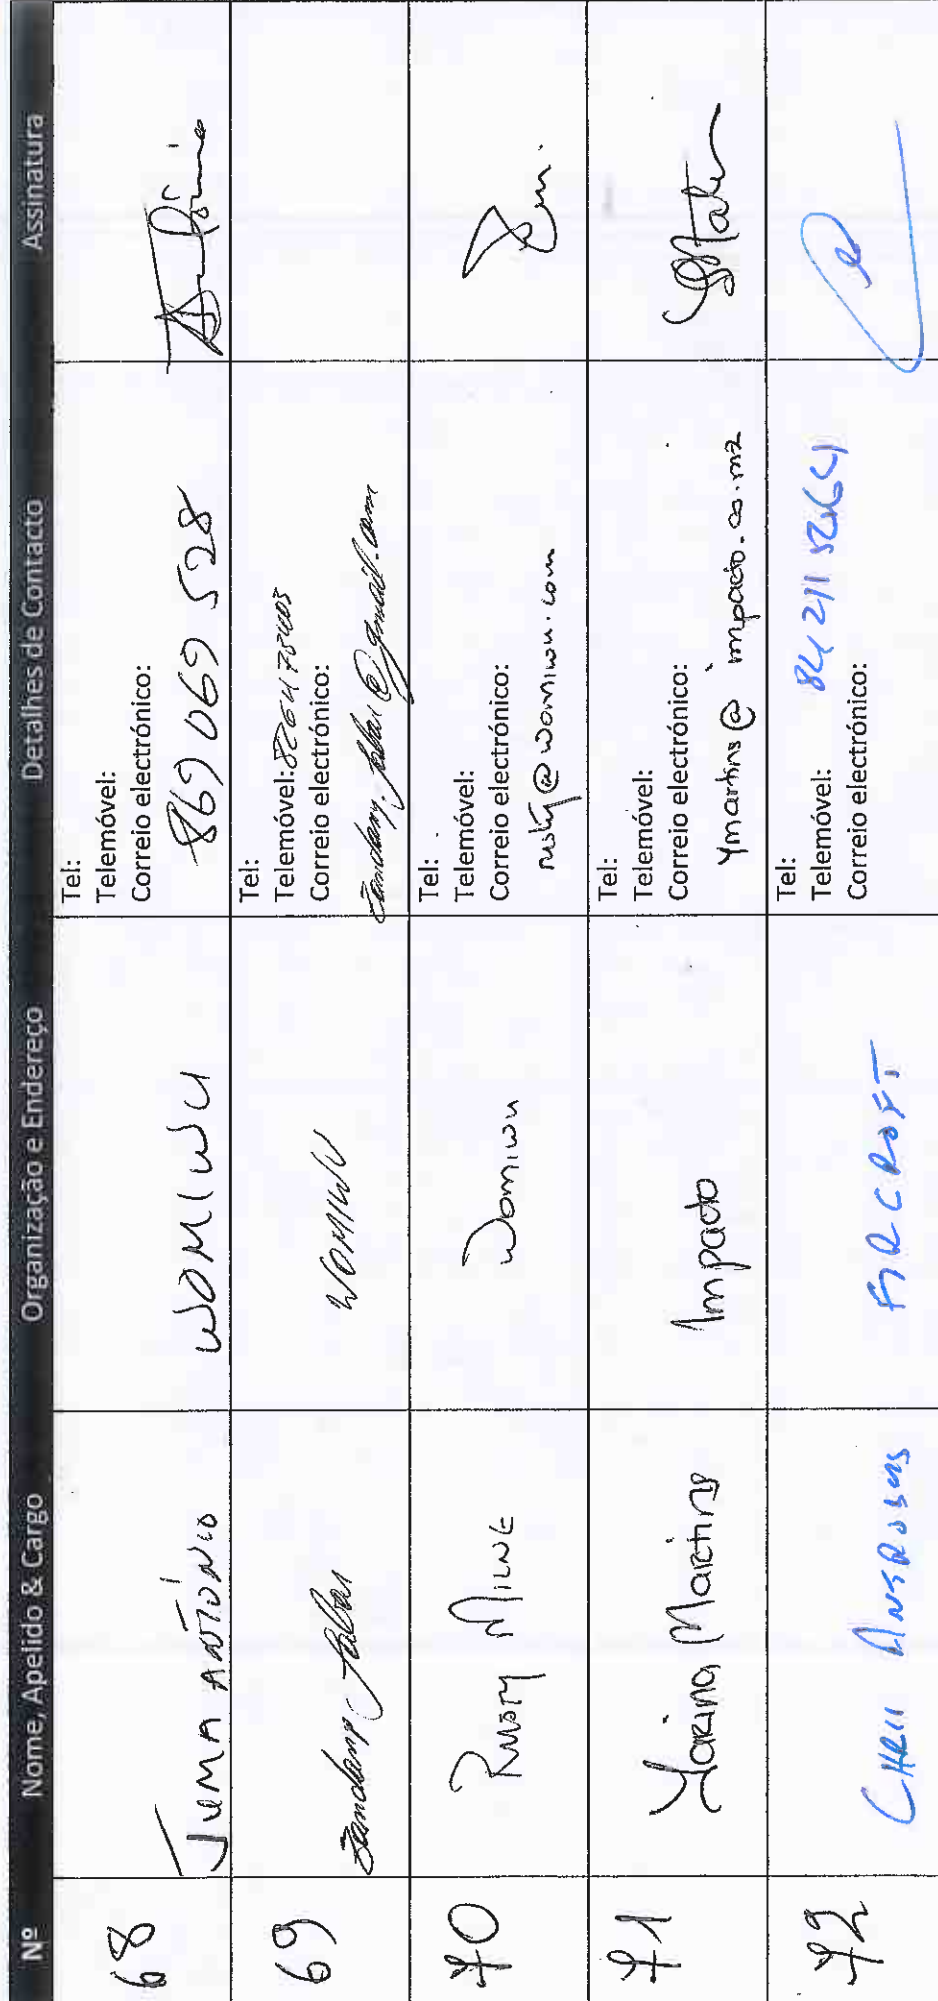 Nº Nome, Apelido & Cargo Organização e Endereço Detalhes de Contacto Assinatura
68 JUMA ANTÓNIO WOMIWU
Tel:
Telemóvel:
Correio electrónico:
869 069 528
69 WOMIWU
Tel:
Telemóvel:
Correio electrónico:
@gmail.com
70 RUSTY MILNE Womiwu
Tel:
Telemóvel:
Correio electrónico:
rusty@womiwu.com
71 Yarina Martins Impacto
Tel:
Telemóvel:
Correio electrónico:
ymartins@impacto.co.mz
72 AIRCROFT
Tel:
Telemóvel:
Correio electrónico: